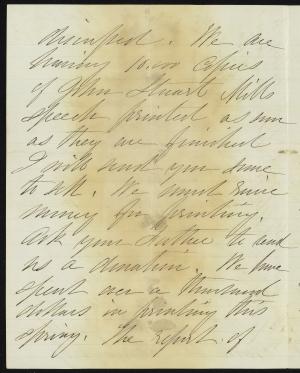 disrespect. We are
having 10.000 Copies
of John Stuart Mills
speech printed as soon
as they are finished
I will send you some
to sell. We must raise
money for printing.
Ask your Father to send
us a donation. We have
spent over a thousand
dollars in printing this
spring. The report of